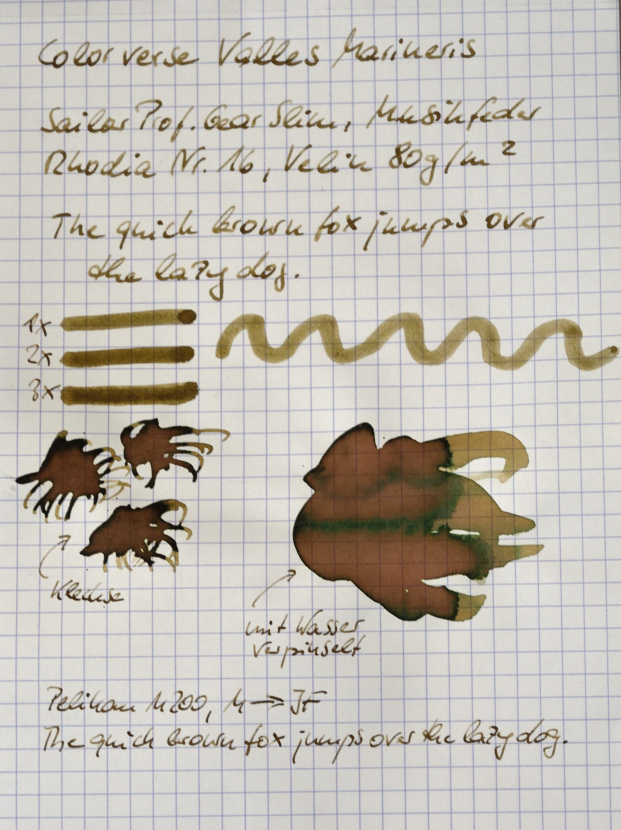 Colorverse Valles Marineris
Sailor Prof. Gear Slim, Musikfeder
Rhodia Nr. 16, Velin 80g/m²
The quick brown fox jumps over
the lazy dog.
1x
2x
3x
Kleckse
mit Wasser
verpinselt
Pelikan M200, M → IF
The quick brown fox jumps over the lazy dog.